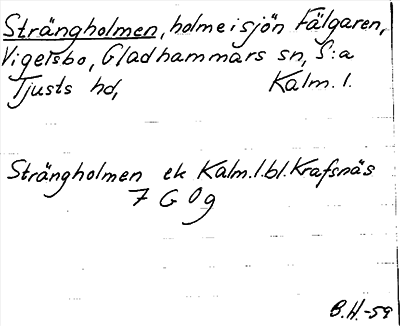 Strängholmen, holme i sjön Fälgaren,
Vigelsbo, Gladhammars sn, S:a
Tjusts hd, Kalm. l.
Strängholmen ek Kalm.l.bl. Krafsnäs
7 G 0 g
B.H.-59